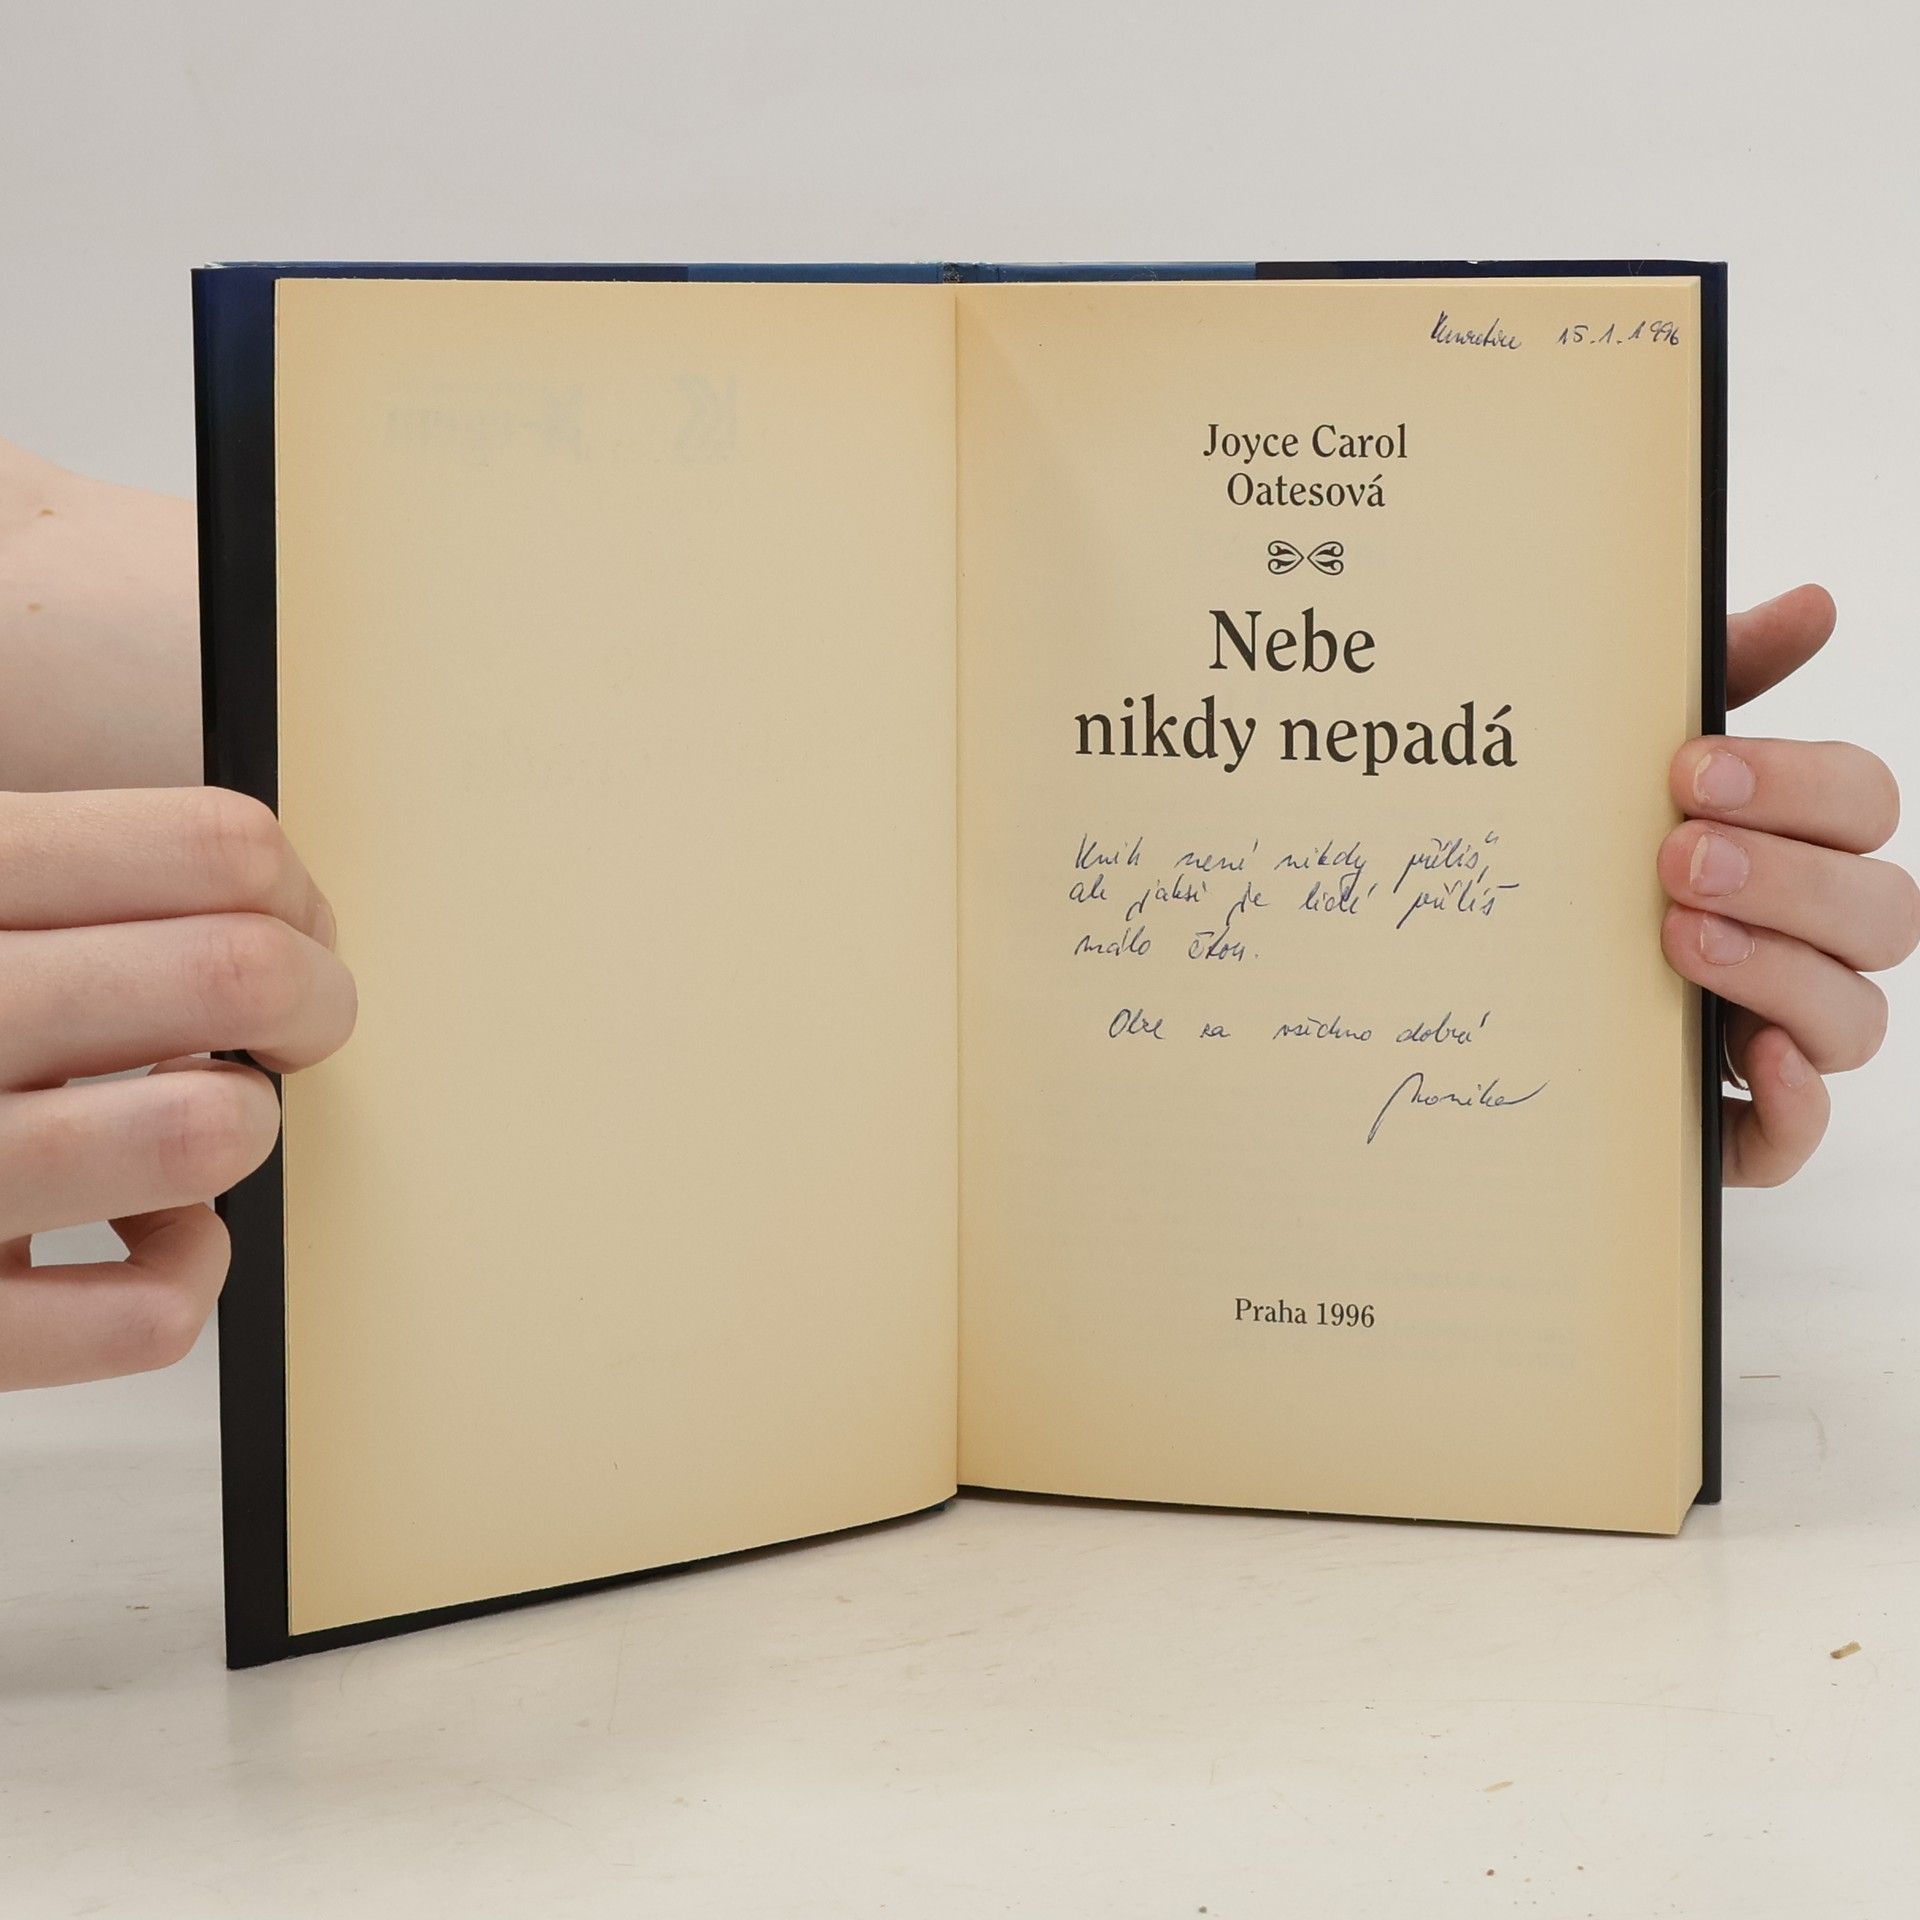 Kunratice 15.1.1996
Joyce Carol
Oatesová
Nebe
nikdy nepadá
Knih není nikdy příliš,
ale jaksi je lidé příliš
málo čtou.
Olze za všechno dobré
Monika
Praha 1996